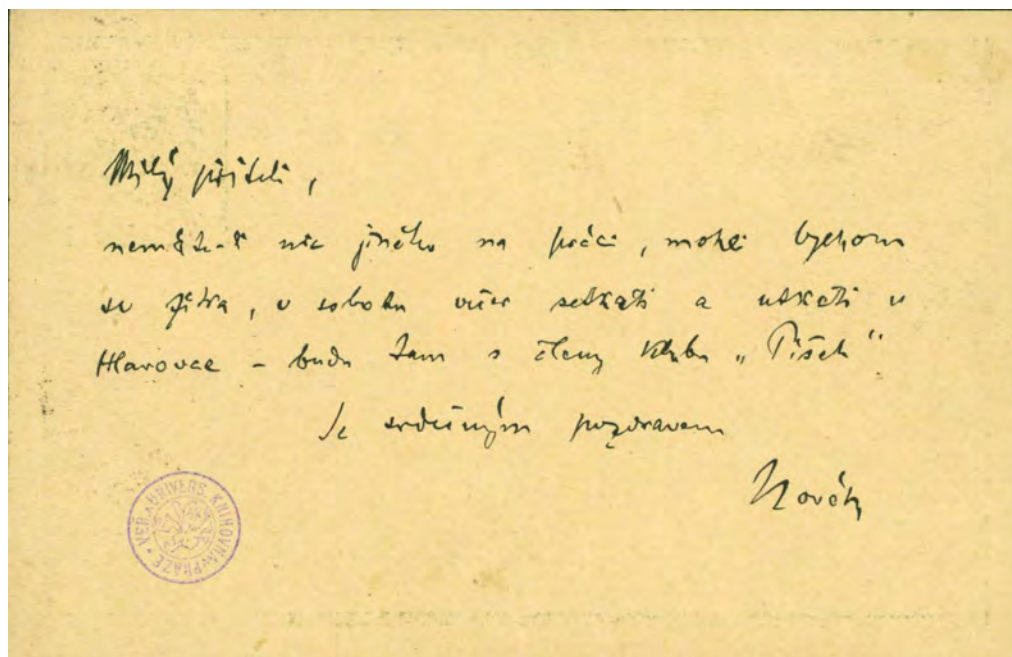 Milý příteli,
nemáte-li nic jiného na práci, mohli bychom
se zítra, v sobotu večer setkati a utkati v
Hlavovce – budu tam s členy klubu „Píšek“
Se srdečným pozdravem
Novák
VEŘ. A UNIVERS. KNIHOVNA V PRAZE